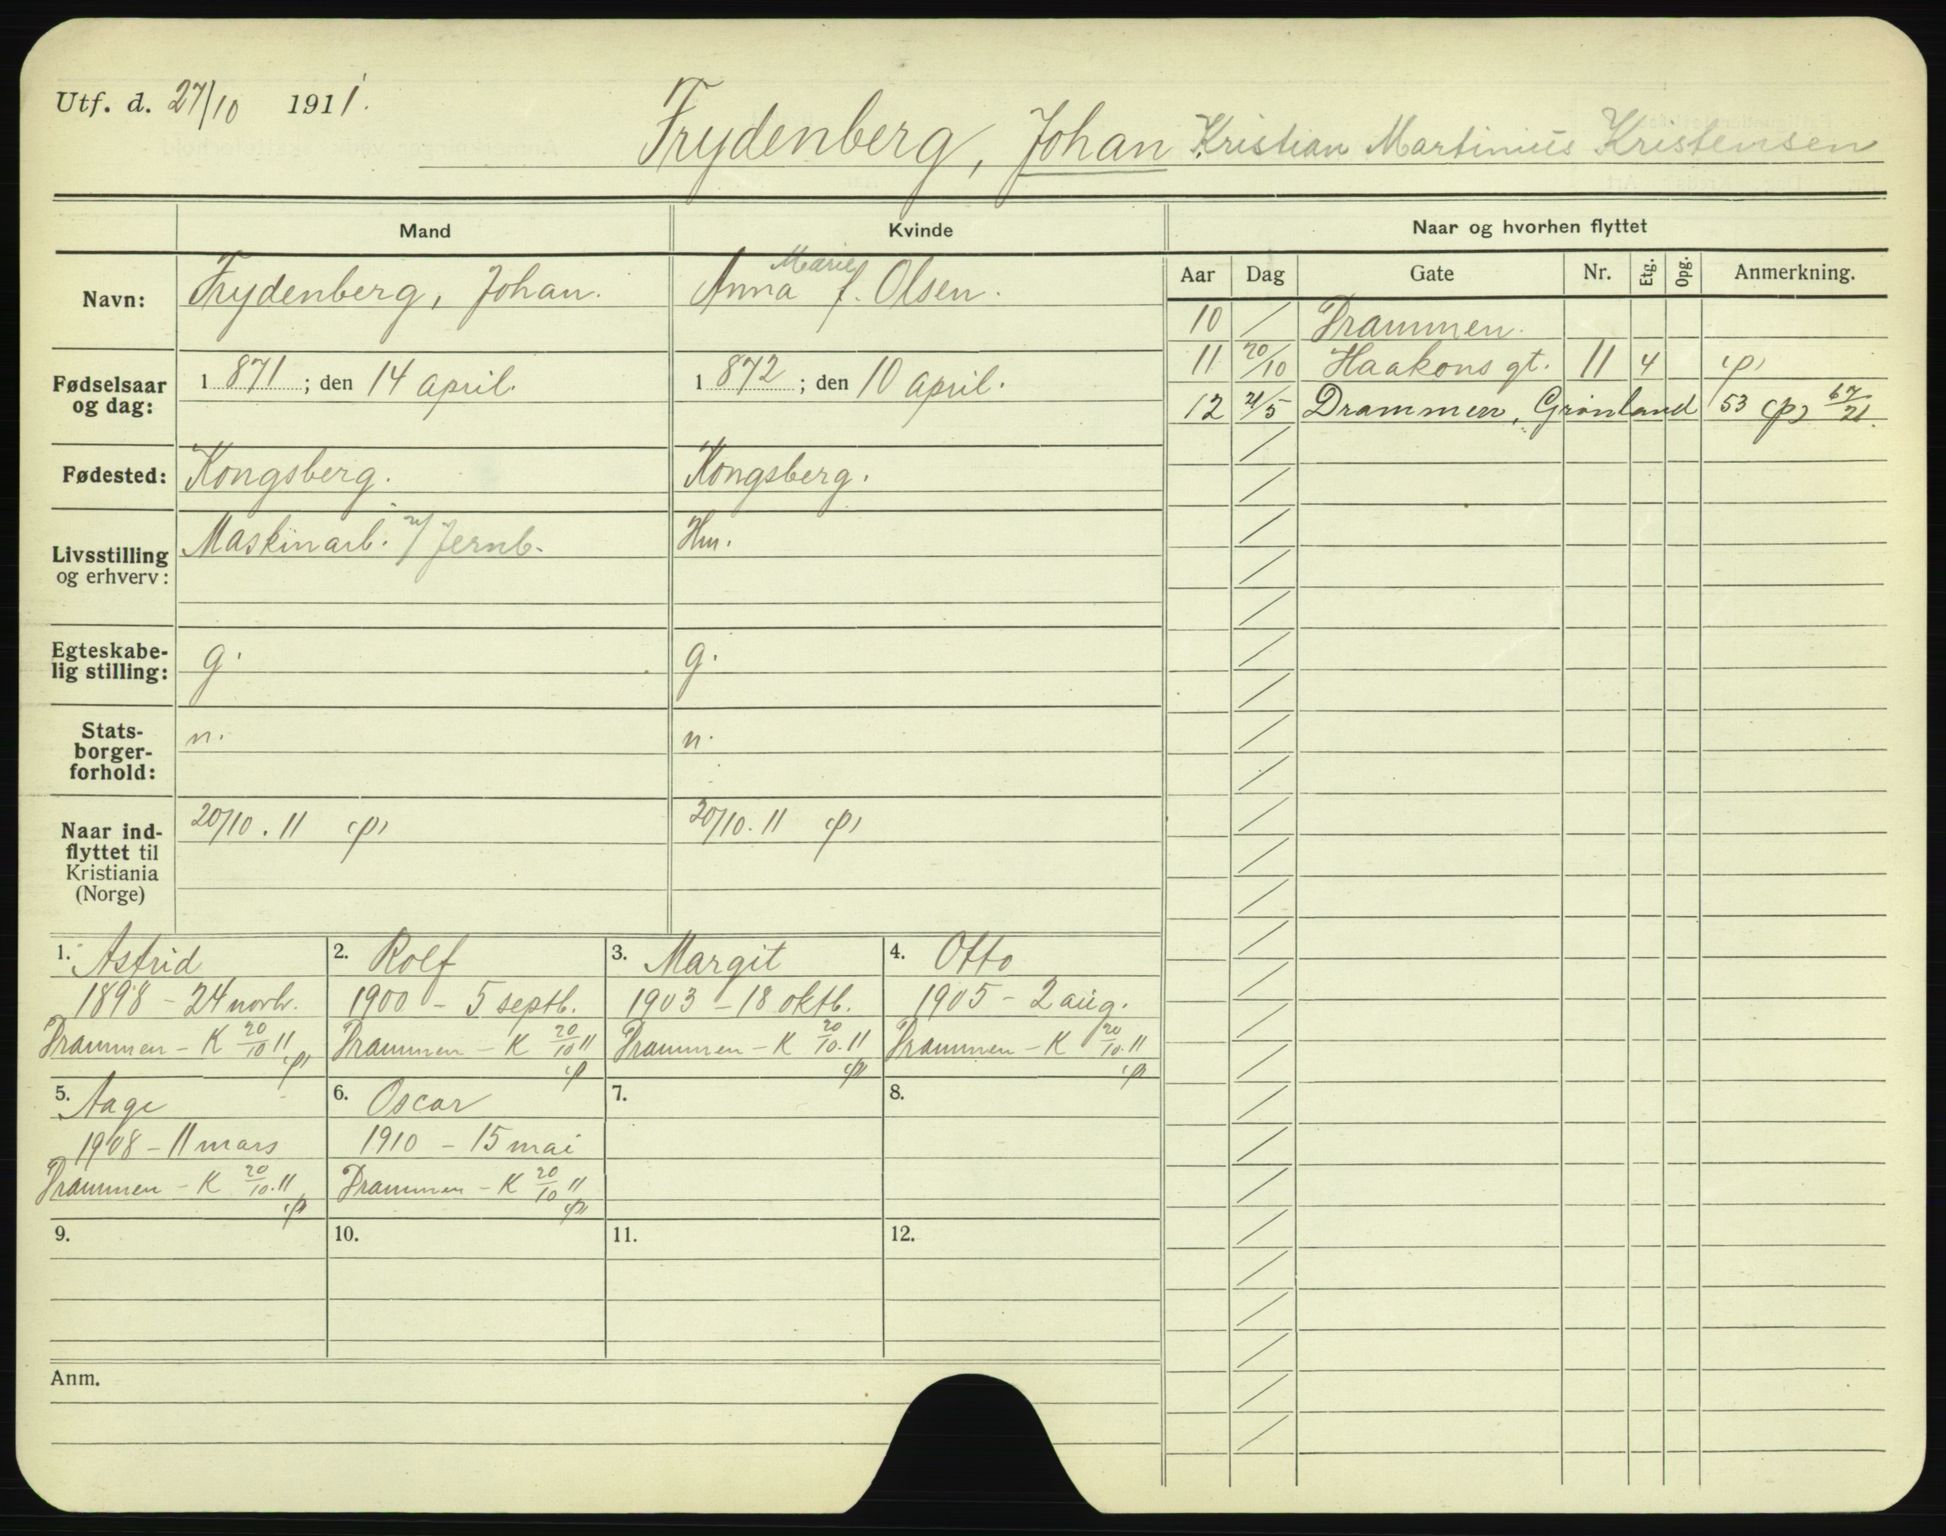 Utf. d. 27/10 1911.
Frydenberg, Johan Kristian Martinius Kristensen
Mand Kvinde Naar og hvorhen flyttet
Aar Dag Gate Nr. Etg. Opg. Anmerkning.
Navn: Frydenberg, Johan. Anna Marie f. Olsen.
Fødselsaar og dag: 1871; den 14 april. 1872; den 10 april.
Fødested: Kongsberg. Kongsberg.
Livsstilling og erhverv: Maskinarb. v/ Jernb. Hm.
Egteskabe-
lig stilling: g. g.
Stats-
borger-
forhold: n. n.
Naar ind-
flyttet til
Kristiania
(Norge) 20/10.11 (p) 20/10.11 (p)
10 / Drammen.
11 20/10 Haakons gt. 11 4 (p)
12 21/5 Drammen, Grønland 53 (p) 67/21.
1. Astrid
1898 - 24 novbr.
Drammen - K 20/10 11 (p)
2. Rolf
1900 - 5 septb.
Drammen - K 20/10 11 (p)
3. Margit
1903 - 18 oktb.
Drammen - K 20/10.11 (p)
4. Otto
1905 - 2 aug.
Drammen - K 20/10.11 (p)
5. Aage
1908 - 11 mars
Drammen - K 20/10.11 (p)
6. Oscar
1910 - 15 mai
Drammen - K 20/10 11 (p)
7.
8.
9.
10.
11.
12.
Anm.